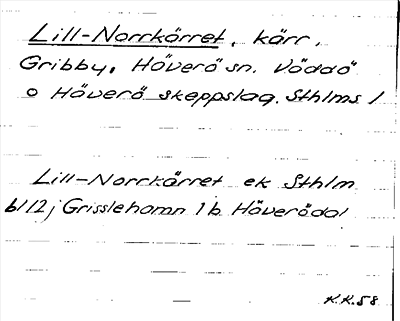 Lill-Norrkärret, kärr,
Gribby, Häverö sn. Väddö
o Häverö skeppslag. Sthlms l
Lill-Norrkärret ek Sthlm
bl 12 j Grisslehamn 1 b Häverödal
K.K. 58